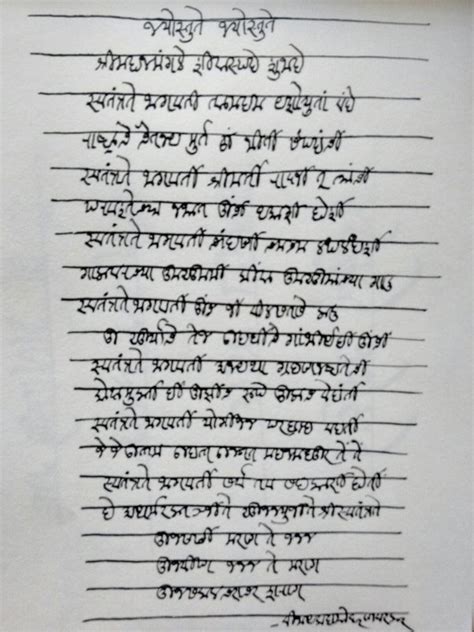 जयोस्तुते जयोस्तुते
श्रीमहन्मंगले शिवास्पदे शुभदे
स्वतंत्रते भगवती त्वामहम यशोयुतां वंदे
राष्ट्राचे चैतन्य मूर्त तूं नीती संपदांची
स्वतंत्रते भगवती श्रीमती राज्ञी तू त्यांची
परवशतेच्या नभात तूंची आकाशी होशी
स्वतंत्रते भगवती चांदणी चमचम लखलखशी
गालावरच्या कुसुमी किंवा कुसुमांच्या गाली
स्वतंत्रते भगवती तूच जी विलसतसे लाली
तू सूर्याचे तेज उदधीचे गांभीर्यही तूंची
स्वतंत्रते भगवती अन्यथा ग्रहणनष्टतेची
मोक्षमुक्ती ही तुझीच रूपे तुलाच वेदांती
स्वतंत्रते भगवती योगीजन परब्रह्म वदती
जे जे उत्तम उदात्त उन्नत महन्मधुर ते ते
स्वतंत्रते भगवती सर्व तव सहचारी होती
हे अधमरक्तरंजिते सुजनपूजिते श्रीस्वतंत्रते
तुजसाठी मरण ते जनन
तुजवीण जनन ते मरण
तुजसकलचराचर शरण